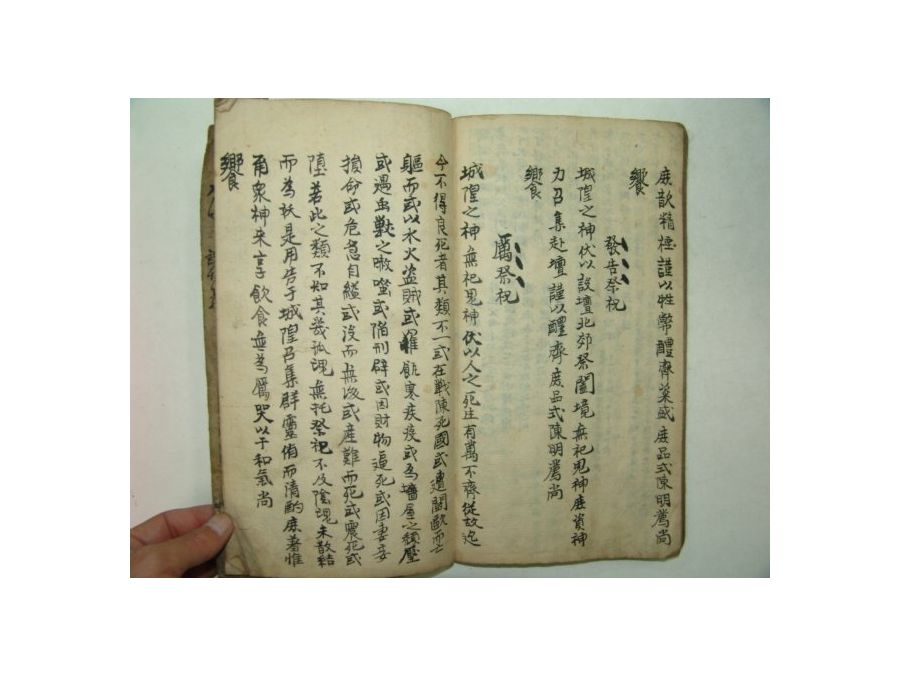 庶歆精禋謹以牲幣醴齊粢盛庶品式陳明薦尚
饗
發告祭祝
城隍之神伏以設壇北郊祭闔境無祀鬼神庶資神
力召集赴壇謹以醴齊庶品式陳明薦尚
饗
厲祭祝
城隍之神無祀鬼神伏以人之死生有萬不齊從故迄
今不得良死者其類不一或在戰陳死國或遭鬪敺而亡
軀而或以水火盜賊或罹飢寒疾疫或為墻屋之頹壓
或遇虫獸之噬或陷刑辟或因財物逼死或因妻妾
損命或危急自縊或沒而無後或產難而死或震死或
墮若此之類不知其幾孤魂無托祭祀不及陰魂未散結
而為妖是用告于城隍召集群靈侑而清酌庶羞惟
甭眾神來享飲食無為厲哭以干和氣尚
饗